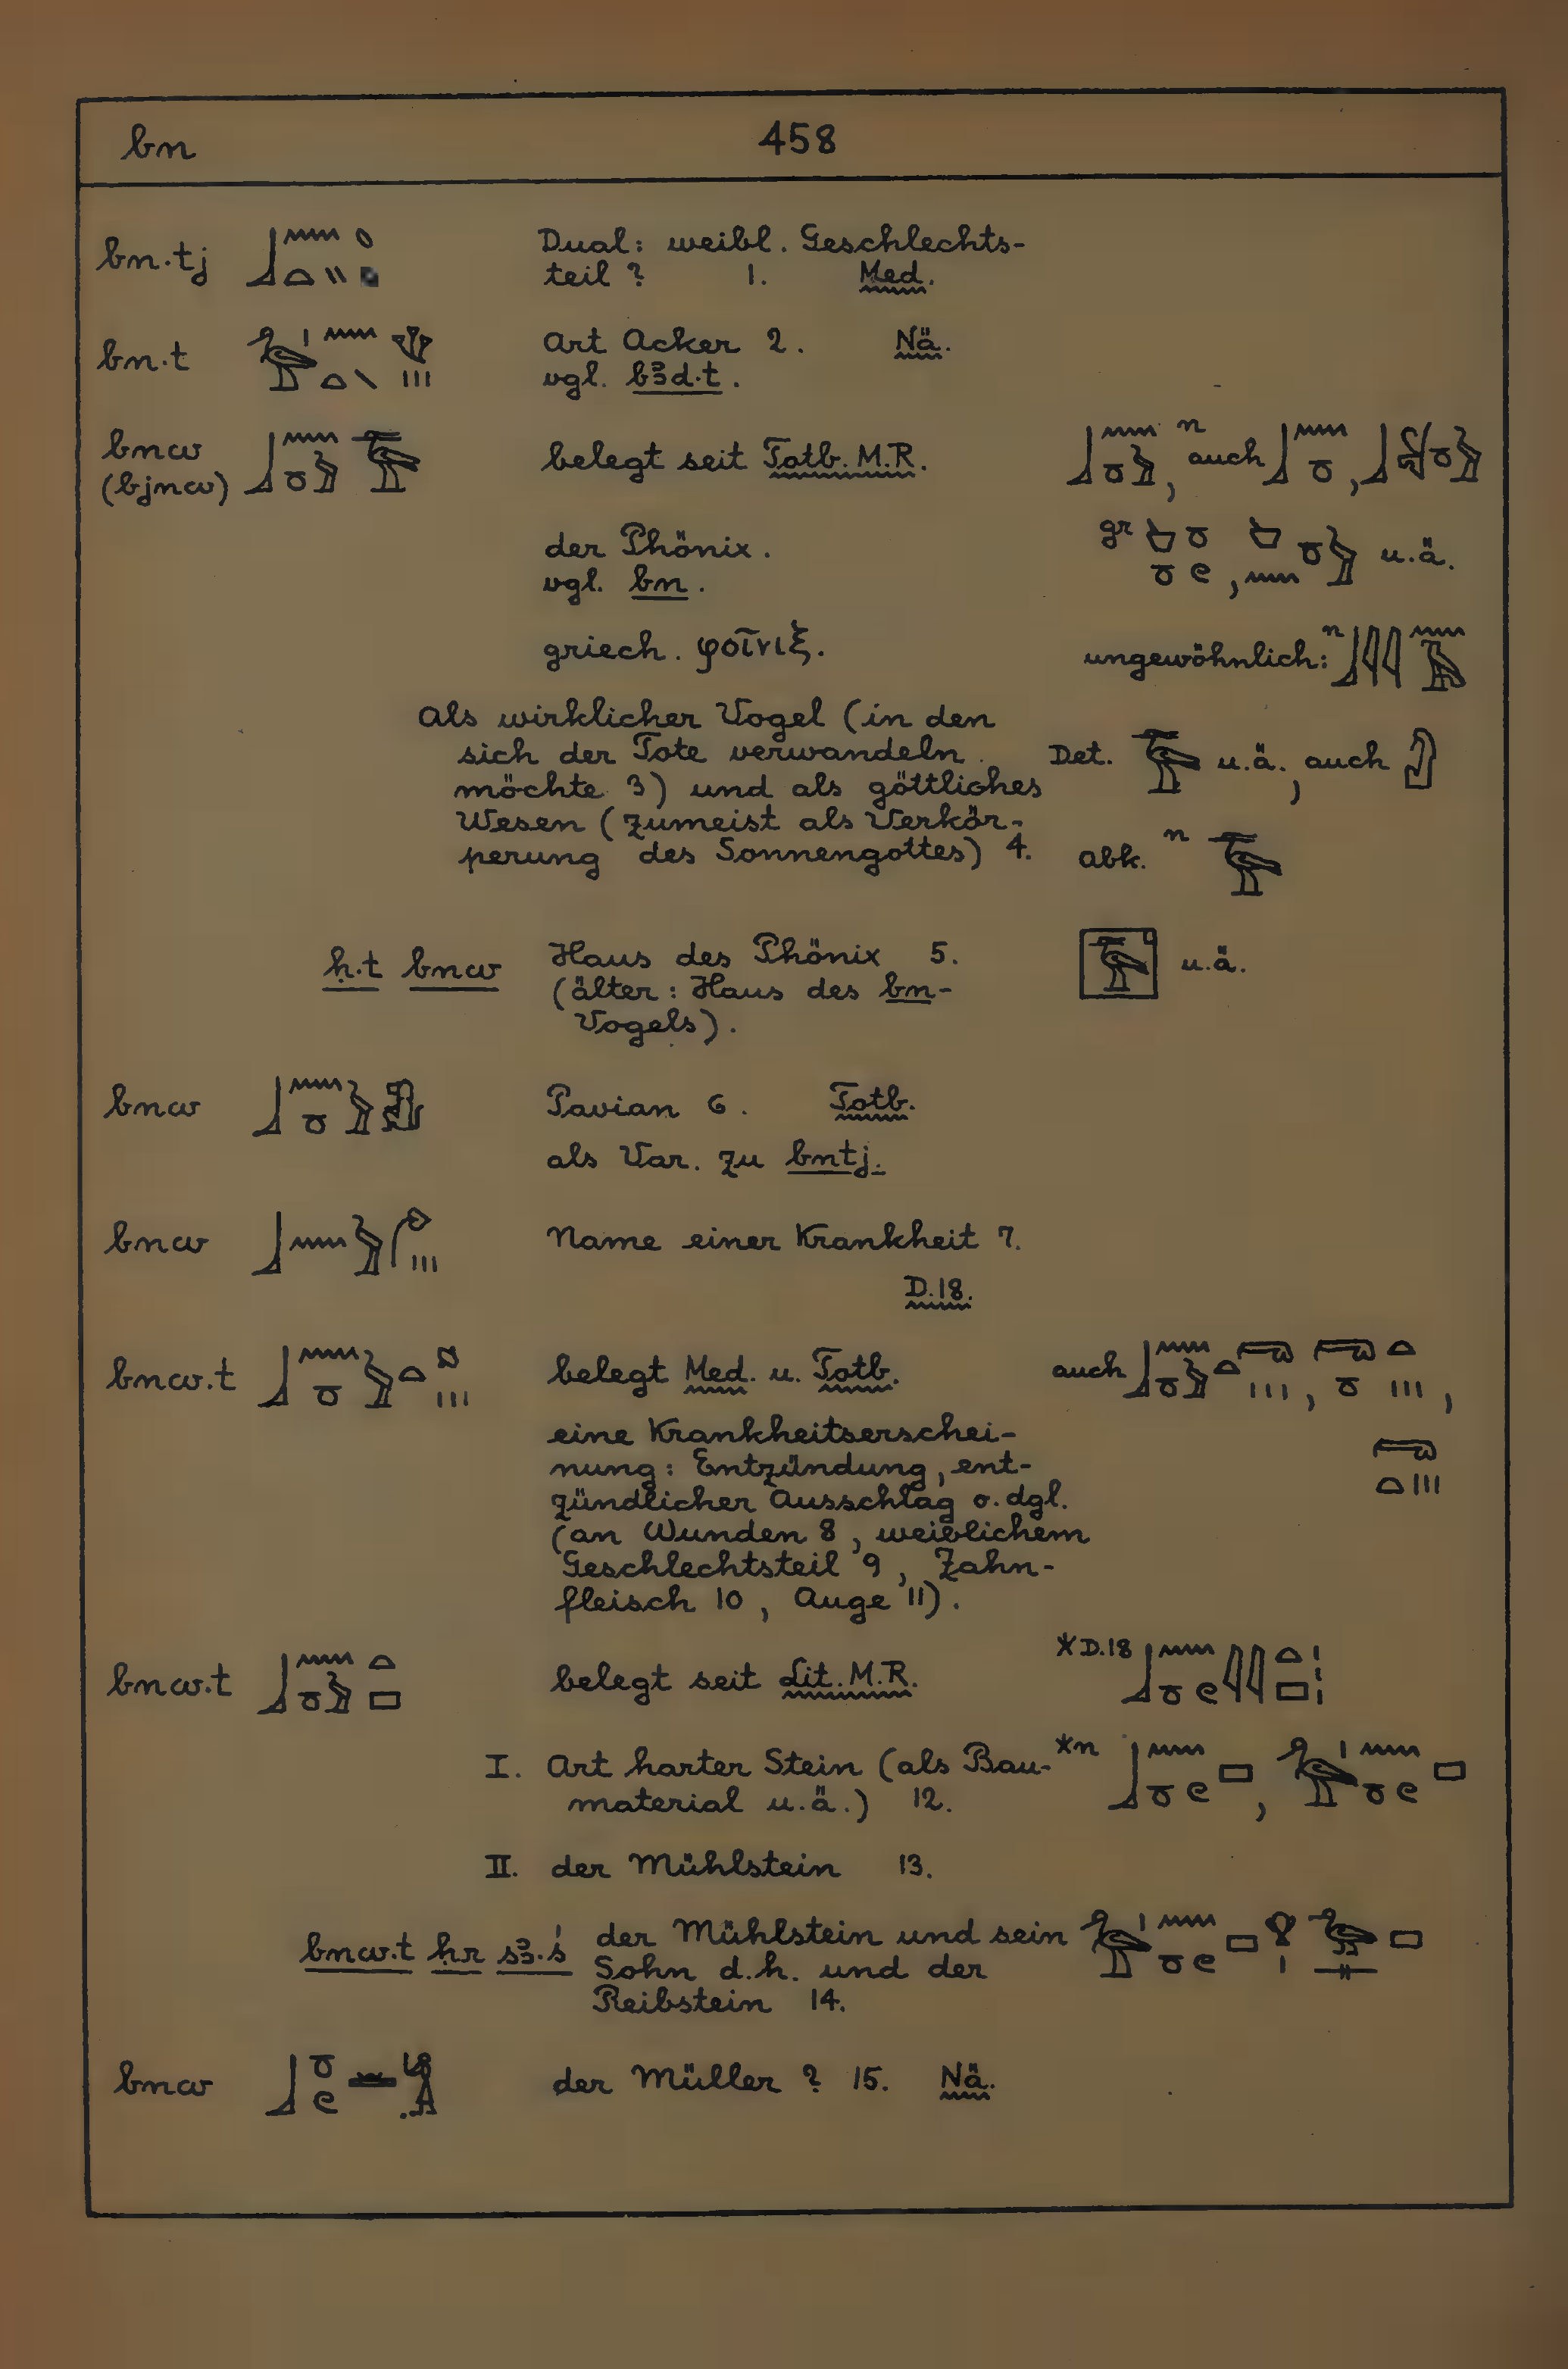 bn 458
bn.tj Dual: weibl. Geschlechts-
teil ? 1. Med.
bn.t Art Acker 2. Nä.
vgl. bꜣd.t.
bnw belegt seit Totb. M.R. n auch
(bjnw)
der Phönix. gr u.ä.
vgl. bn.
griech. φοῖνιξ. ungewöhnlich: n
Als wirklicher Vogel (in den
sich der Tote verwandeln Det. u.ä., auch
möchte 3) und als göttliches
Wesen (zumeist als Verkör-
perung des Sonnengottes) 4. Abk. n
ḥ.t bnw Haus des Phönix 5. u.ä.
(älter: Haus des bn-
Vogels).
bnw Pavian 6. Totb.
als Var. zu bntj.
bnw Name einer Krankheit 7.
D.18.
bnw.t belegt Med. u. Totb. auch
eine Krankheitserschei-
nung: Entzündung, ent-
zündlicher Ausschlag o. dgl.
(an Wunden 8, weiblichem
Geschlechtsteil 9, Zahn-
fleisch 10, Auge 11).
bnw.t belegt seit Lit. M.R. *D.18
I. Art harter Stein (als Bau- *n
material u.ä.) 12.
II. der Mühlstein 13.
bnw.t ḥr sꜣ.ś der Mühlstein und sein
Sohn d.h. und der
Reibstein 14.
bnw der Müller ? 15. Nä.